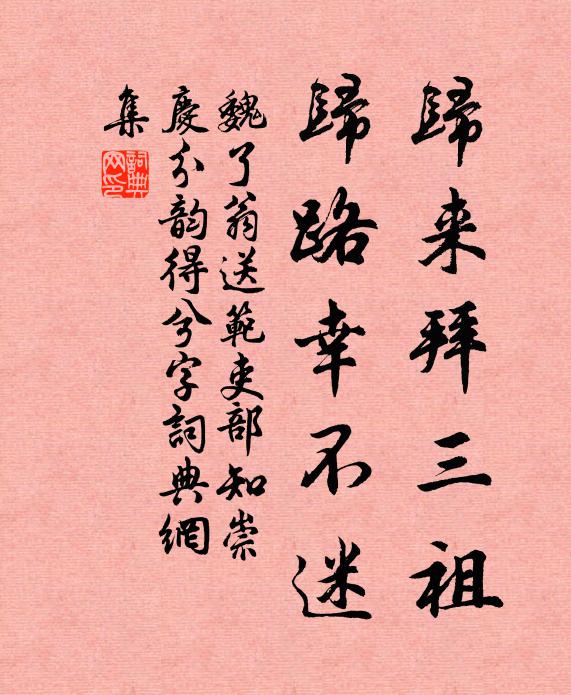 歸来拜三祖
歸路幸不迷
魏了翁送範吏部知崇
慶分韵得兮字詞典網
集
詞典网印